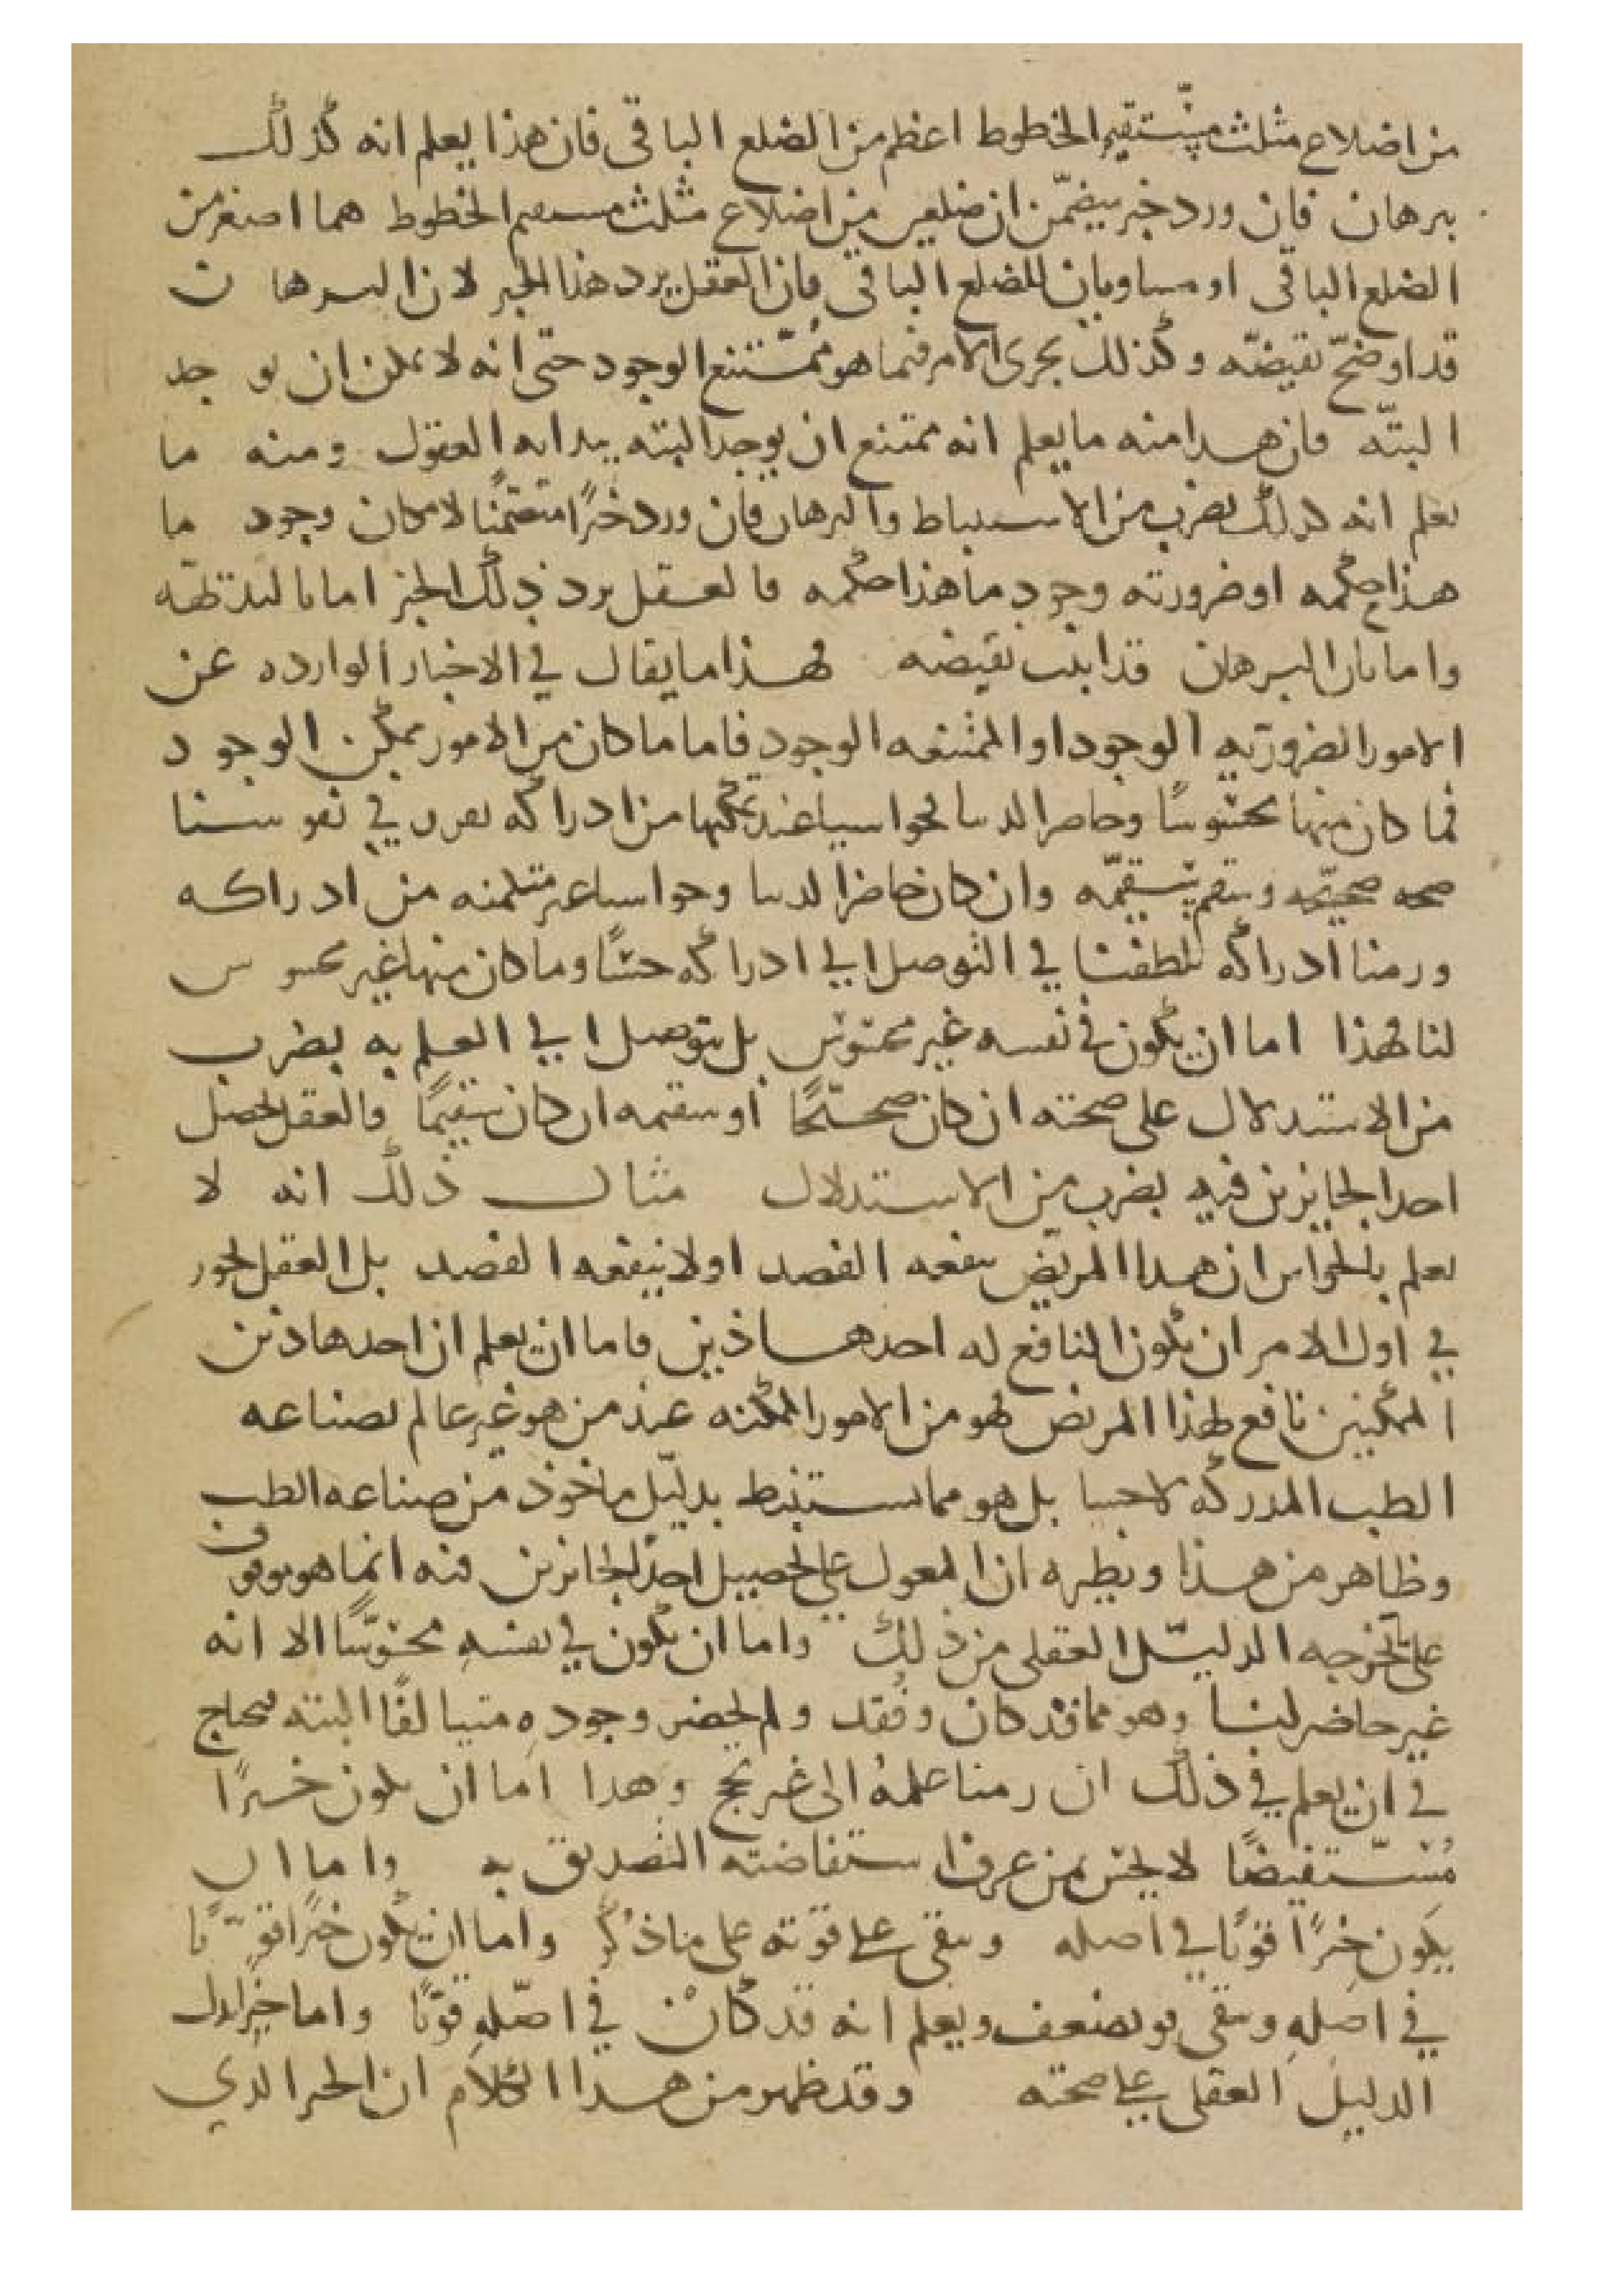 من اضلاع مثلث مستقيم الخطوط اعظم من الضلع الباقى فان هذا يعلم انه كذلك
ببرهان فان ورد خبر يتضمّن ان ضلعين من اضلاع مثلث مستقيم الخطوط هما اصغر من
الضلع الباقى او مساويان للضلع الباقى فان العقل يرد هذا الخبر لان البرهان
قد اوضح نقيضه وكذلك يجرى الامر فيما هو ممتنع الوجود حتى انه لا يمكن ان يوجد
البتّه فان هذا منه ما يعلم انه ممتنع ان يوجد البته ببدايه العقول ومنه ما
يعلم انه كذلك بضرب من الاستنباط والبرهان فان ورد خبرًا متضمنًا لامكان وجود ما
هذا حكمه او ضرورته وجود ما هذا حكمه فالعقل يرد ذلك الخبر اما بالبديهه
واما بان البرهان قد اثبت نقيضه فهذا ما يقال في الاخبار الوارده عن
الامور الضروريه الوجود او الممتنعه الوجود فاما ما كان من الامور ممكن الوجود
فما كان منها محسوسًا وحاضرا لدينا فحواسنا عند تمكنها من ادراكه تقرر في نفوسنا
صحه صحيحه وسقم سقيمه وان كان حاضرا لدينا وحواسنا غير متمكنه من ادراكه
ورمنا ادراكه تلطفنا في التوصل الى ادراكه حسًّا وما كان منها غير محسوس
لنا فهذا اما ان يكون في نفسه غير محسوس بل يتوصل الى العلم به بضرب
من الاستدلال على صحته ان كان صحيحًا او سقمه ان كان سقيمًا فالعقل يحصل
احد الجايزين فيه بضرب من الاستدلال مثال ذلك انه لا
يعلم بالحواس ان هذا المريض ينفعه الفصد او لا ينفعه الفصد بل العقل يجوز
في اول الامر ان يكون النافع له احد هاذين فاما ان يعلم ان احد هاذين
الممكنين نافع لهذا المريض فهو من الامور الممكنه عند من هو غير عالم بصناعه
الطب المدركه لا حسا بل هو مما يستنبط بدليل ماخوذ من صناعه الطب
وظاهر من هذا ونظيره ان المعول على تحصيل احد الجائزين فيه انما هو موقوف
على تخرجه الدليل العقلى من ذلك واما ان يكون في نفسه محسوسًا الا انه
غير حاضر لنا وهو مما قد كان وفُقد ولم يحضر وجوده متيالفًا البته فيحتاج
في ان يعلم في ذلك ان رمنا علمهُ الى غير نجح وهذا اما ان يكون خبرًا
مُستفيضًا لا يحسن بمن عرف استفاضته التصديق به واما ان
يكون خبرًا قويًا في اصله ويبقى على قوته على ما ذُكر واما ان يكون خبرًا قويًا
في اصلهِ ويبقى بضعف ويعلم انه قد كان في اصلهِ قويًا واما خبر يدل
الدليل العقلى على صحته وقد ظهر من هذا الكلام ان الخبر الذي